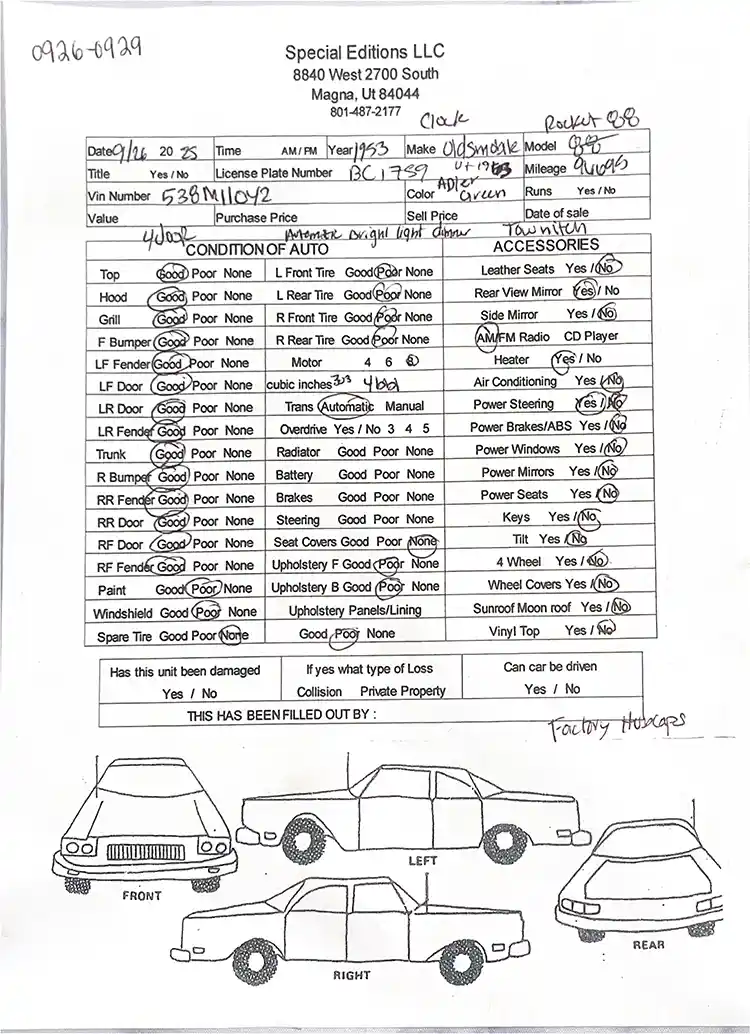 0926-0929
Special Editions LLC
8840 West 2700 South
Magna, Ut 84044
801-487-2177
Clock Rocket 88
Date 9/26 20 25 Time AM / PM Year 1953 Make Oldsmobile Model 88
Title Yes / No License Plate Number BC1759 Ut 1953 Mileage
Vin Number 538M11042 Color Green Runs Yes / No
Value Purchase Price Sell Price Date of sale
4 door Automatic Bright light dimmer Tow hitch
CONDITION OF AUTO ACCESSORIES
Top Good Poor None L Front Tire Good Poor None Leather Seats Yes / No
Hood Good Poor None L Rear Tire Good Poor None Rear View Mirror Yes / No
Grill Good Poor None R Front Tire Good Poor None Side Mirror Yes / No
F Bumper Good Poor None R Rear Tire Good Poor None AM/FM Radio CD Player
LF Fender Good Poor None Motor 4 6 8 Heater Yes / No
LF Door Good Poor None cubic inches 303 4bbl Air Conditioning Yes / No
LR Door Good Poor None Trans Automatic Manual Power Steering Yes / No
LR Fender Good Poor None Overdrive Yes / No 3 4 5 Power Brakes/ABS Yes / No
Trunk Good Poor None Radiator Good Poor None Power Windows Yes / No
R Bumper Good Poor None Battery Good Poor None Power Mirrors Yes / No
RR Fender Good Poor None Brakes Good Poor None Power Seats Yes / No
RR Door Good Poor None Steering Good Poor None Keys Yes / No
RF Door Good Poor None Seat Covers Good Poor None Tilt Yes / No
RF Fender Good Poor None Upholstery F Good Poor None 4 Wheel Yes / No
Paint Good Poor None Upholstery B Good Poor None Wheel Covers Yes / No
Windshield Good Poor None Upholstery Panels/Lining Sunroof Moon roof Yes / No
Spare Tire Good Poor None Good Poor None Vinyl Top Yes / No
Has this unit been damaged If yes what type of Loss Can car be driven
Yes / No Collision Private Property Yes / No
THIS HAS BEEN FILLED OUT BY :
Factory Hubcaps
LEFT
FRONT
REAR
RIGHT